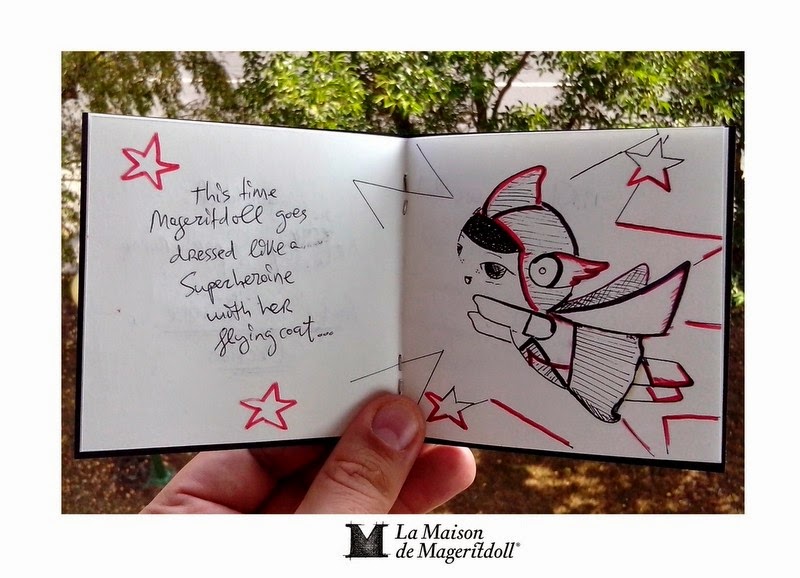 This time
Mageritdoll goes
dressed like a.....
Superheroine
with her
flying coat....
M La Maison
de Mageritdoll®